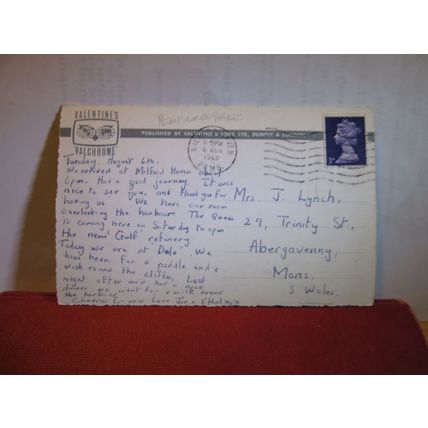 VALENTINE'S
VALCHROME
PUBLISHED BY VALENTINE & SONS LTD, DUNDEE & LONDON
6 AUG
1968
3D
Tuesday, August 6th.
We arrived at Milford Haven about
6pm. Had a good journey. It was
nice to see you, and thankyou for
having us. We have our room
overlooking the harbour. The Queen
is coming here on Saturday to open
the new 'Gulf' refinery
Today we are at Dale. We
have been for a paddle and a
walk round the cliffs. Last
night after we'd had a nice
dinner we went for a walk round
the harbour
Cheerio for now. Love
Mrs. J. Lynch,
29, Trinity St,
Abergavenny,
Mons,
S Wales.